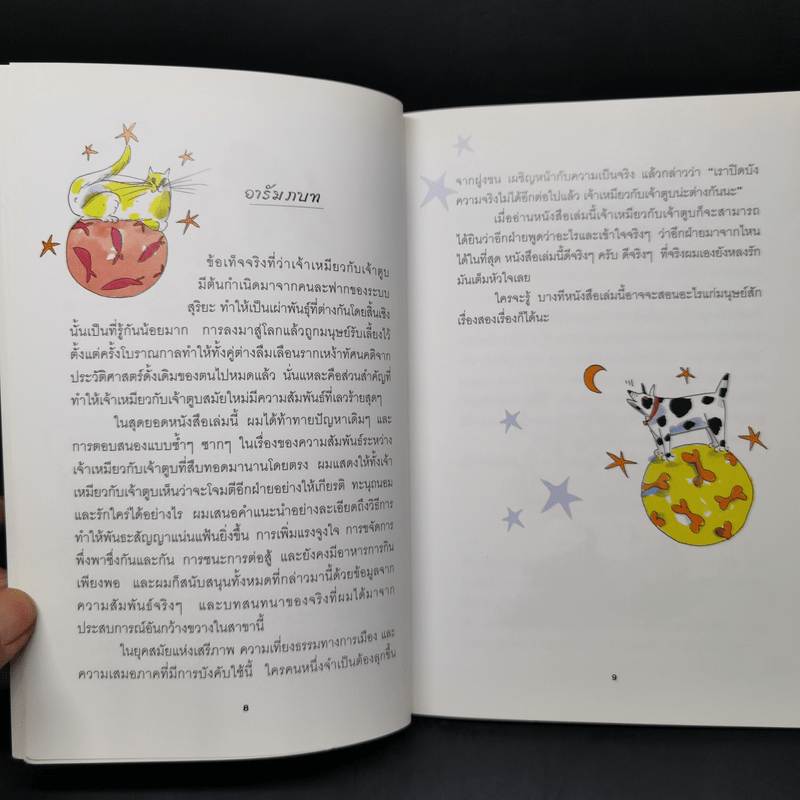 อารัมภบท
ข้อเท็จจริงที่ว่าเจ้าเหมียวกับเจ้าตูบ
มีต้นกำเนิดมาจากคนละฟากของระบบ
สุริยะ ทำให้เป็นเผ่าพันธุ์ที่ต่างกันโดยสิ้นเชิง
นั้นเป็นที่รู้กันน้อยมาก การลงมาสู่โลกแล้วถูกมนุษย์รับเลี้ยงไว้
ตั้งแต่ครั้งโบราณกาลทำให้ทั้งคู่ต่างลืมเลือนรากเหง้าทัศนคติจาก
ประวัติศาสตร์ดั้งเดิมของตนไปหมดแล้ว นั่นแหละคือส่วนสำคัญที่
ทำให้เจ้าเหมียวกับเจ้าตูบสมัยใหม่มีความสัมพันธ์ที่เลวร้ายสุดๆ
ในสุดยอดหนังสือเล่มนี้ ผมได้ท้าทายปัญหาเดิมๆ และ
การตอบสนองแบบซ้ำๆ ซากๆ ในเรื่องของความสัมพันธ์ระหว่าง
เจ้าเหมียวกับเจ้าตูบที่สืบทอดมานานโดยตรง ผมแสดงให้ทั้งเจ้า
เหมียวกับเจ้าตูบเห็นว่าจะโจมตีอีกฝ่ายอย่างให้เกียรติ ทะนุถนอม
และรักใคร่ได้อย่างไร ผมเสนอคำแนะนำอย่างละเอียดถึงวิธีการ
ทำให้พันธะสัญญาแน่นแฟ้นยิ่งขึ้น การเพิ่มแรงจูงใจ การขจัดการ
พึ่งพาซึ่งกันและกัน การชนะการต่อสู้ และยังคงมีอาหารการกิน
เพียงพอ และผมก็สนับสนุนทั้งหมดที่กล่าวมานี้ด้วยข้อมูลจาก
ความสัมพันธ์จริงๆ และบทสนทนาของจริงที่ผมได้มาจาก
ประสบการณ์อันกว้างขวางในสาขานี้
ในยุคสมัยแห่งเสรีภาพ ความเที่ยงธรรมทางการเมือง และ
ความเสมอภาคที่มีการบังคับใช้นี้ ใครคนหนึ่งจำเป็นต้องลุกขึ้น
8
จากฝูงชน เผชิญหน้ากับความเป็นจริง แล้วกล่าวว่า “เราปิดบัง
ความจริงไม่ได้อีกต่อไปแล้ว เจ้าเหมียวกับเจ้าตูบน่ะต่างกันนะ”
เมื่ออ่านหนังสือเล่มนี้เจ้าเหมียวกับเจ้าตูบก็จะสามารถ
ได้ยินว่าอีกฝ่ายพูดว่าอะไรและเข้าใจจริงๆ ว่าอีกฝ่ายมาจากไหน
ได้ในที่สุด หนังสือเล่มนี้ดีจริงๆ ครับ ดีจริงๆ ที่จริงผมเองยังหลงรัก
มันเต็มหัวใจเลย
ใครจะรู้ บางทีหนังสือเล่มนี้อาจจะสอนอะไรแก่มนุษย์สัก
เรื่องสองเรื่องก็ได้นะ
9